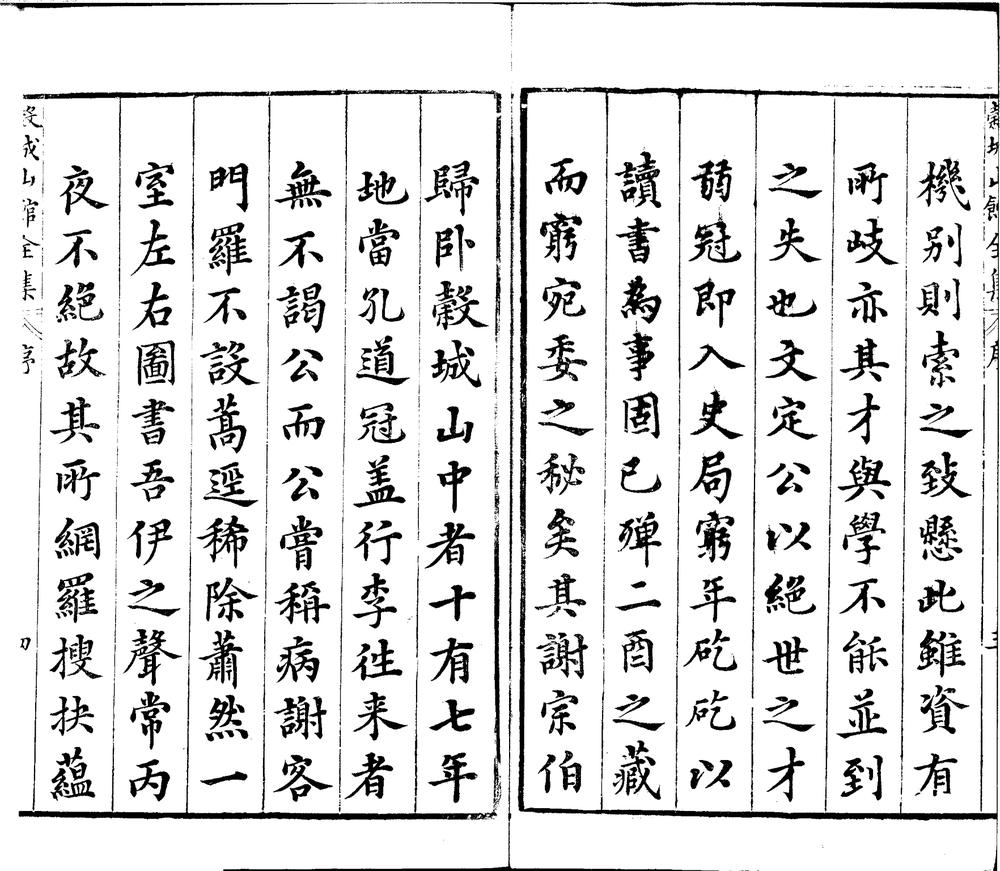 穀城山館全集 序
機别則索之致懸此雖資有
所岐亦其才與學不能並到
之失也文定公以絕世之才
弱冠即入史局窮年矻矻以
讀書為事固已殫二酉之藏
而窮宛委之秘矣其謝宗伯
歸卧穀城山中者十有七年
地當孔道冠盖行李徃来者
無不謁公而公嘗稱病謝客
門羅不設蒿逕稀除蕭然一
室左右圖書吾伊之聲常丙
夜不絕故其所網羅搜抉蘊
穀城山館全集 序